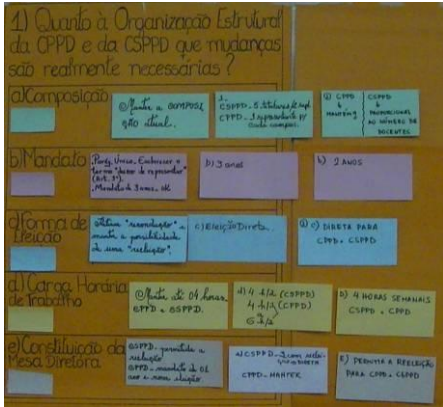 1) Quanto à Organização Estrutural
da CPPD e da CSPPD que mudanças
são realmente necessárias?
a) Composição
Manter a composi
ção atual.
CSPPD - 5 titulares/5 supl
CPPD - 1 representante p/
cada campus.
CPPD
MANTÉM
CSPPD
PROPORCIONAL
AO NÚMERO DE
DOCENTES
b) Mandato
Parág. Único. Esclarecer o
termo
Mandato de 3 anos. OK
b) 3 anos
b) 2 ANOS
c) Forma de
Eleição
"recondução" e
manter a possibilidade
de uma "reeleição".
c) Eleição Direta.
c) DIRETA PARA
CPPD e CSPPD
d) Carga Horária
de Trabalho
Manter até 04 horas.
CPPD e CSPPD.
d) 4 h/s (CSPPD)
4 h/s (CPPD)
D) 4 HORAS SEMANAIS
CSPPD e CPPD
e) Constituição da
Mesa Diretora
CSPPD - permitida a
reeleição
CPPD - mandato de 02
ano e uma eleição.
CSPPD - 3 com
CPPD - MANTER
E) PERMITIR A REELEIÇÃO
PARA CPPD e CSPPD